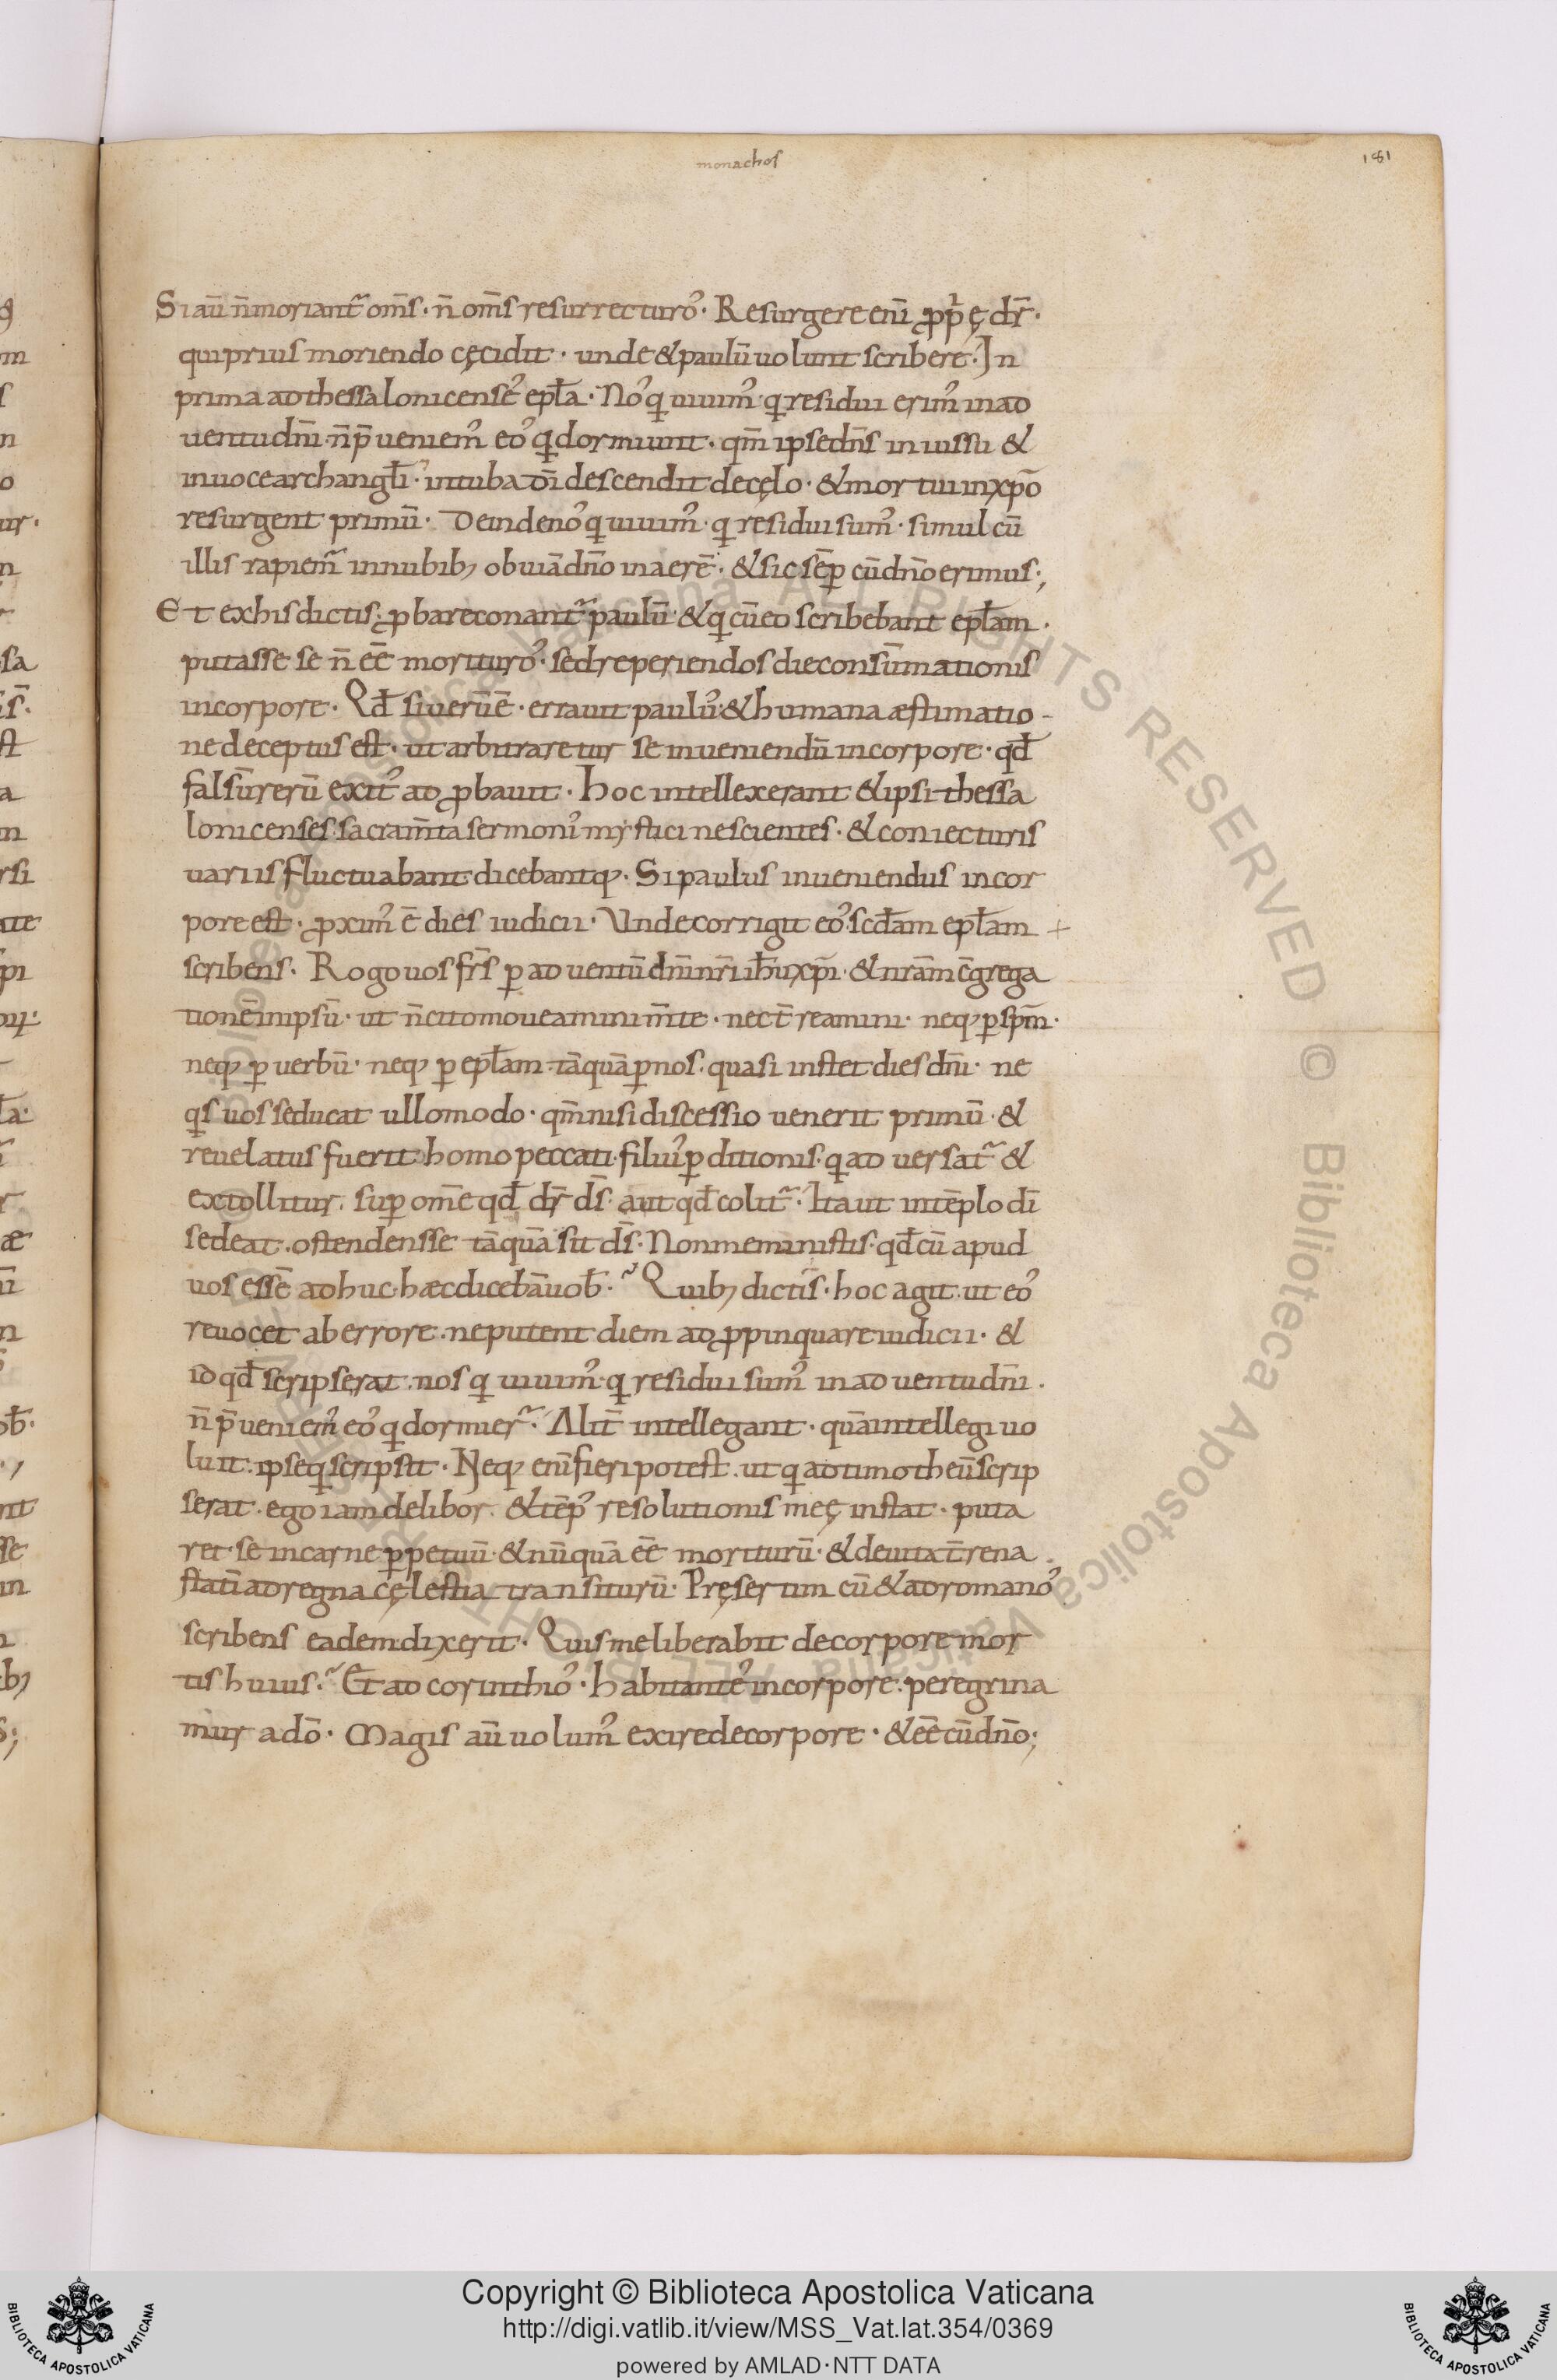 monachos
181
Si aū n̄ moriant᷑ om̄s · n̄ om̄s resurrecturoꝰ · Resurgere eni̅ ꝓpͥę dr̄ ·
qui prius moriendo cęcidit · unde & paulū uolunt scribere · In
prima ad thessalonicenseꝰ epl̄a · Noꝰ q̇ uiuimꝰ · q̇ residui erimꝰ in ad
uentu dn̄i · n̄ p̄ueniemꝰ eoꝰ q̇ dormiunt · qm̄ ipse dn̄s in iussu &
in uoce archangl̄i · in tuba dī descendit de cęlo · & mortui in xp̄o
resurgent primū · Deinde noꝰ q̇ uiuimꝰ · q̇ residui sumꝰ · simul cū
illis rapiem᷑ in nubibꝫ obuiā dn̄o in aerē · & sic sēꝑ cū dn̄o erimus ·,
Et ex his dictis · ꝓbare conant᷑ paulū · & q̇ cū eo scribebant epl̄am ·
putasse se n̄ eē morituroꝰ · sed reperiendos die consūmationis
in corpore · Qđ si uerū ē · errauit pauluꝰ · & humana æstimatio-
ne deceptus est · ut arbitraretur se inueniendū in corpore · qđ
falsū rerū exitꝰ adꝓbauit · Hoc intellexerant & ipsi thessa
lonicenses · sacram̄ta sermoniꝰ mystici nescientes · & coniecturis
uariis fluctuabant dicebantqꝫ · Si paulus inueniendus in cor
pore est · ꝓximꝰ ē dies iudicii · Unde corrigit eoꝰ · scđam epl̄am +
scribens · Rogo uos fr̄s ꝑ aduentū dn̄i nr̄i ih̄u xp̄i · & nr̄am c̄grega
tionē in ipsū · ut n̄ cito moueamini m̄te · nec t̄reamini · neqꝫ ꝑ sp̄m ·
neqꝫ ꝑ uerbū · neqꝫ ꝑ epl̄am · tāquā ꝑ nos · quasi instet dies dn̄i · ne
q̇s uos seducat ullo modo · qm̄ nisi discessio uenerit primū · &
reuelatus fuerit homo peccati · filiuꝰ ꝑditionis · q̇ aduersat᷑ &
extollitur · suꝑ om̄e qđ dr̄ ds̄ · aut qđ colit᷑ · Ita ut in tēplo dī
sedeat · ostendens se tāquā sit ds̄ · Non meministis · qđ cū apud
uos essē adhuc · hæc dicebā uob̄ · Quibꝫ dictis · hoc agit · ut eoꝰ
reuocet ab errore · ne putent diem adꝓpinquare iudicii · &
id qđ scripserat · nos q̇ uiuimꝰ · q̇ residui sumꝰ in aduentu dn̄i ·
n̄ p̄ueniemꝰ eoꝰ q̇ dormier᷑ · Alit̄ intellegant · quā intellegi uo
luit · ipse q̇ scripsit · Neqꝫ enī fieri potest · ut q̇ ad timotheū scrip
serat · ego iam delibor · & tēpꝰ resolutionis meę instat · puta
ret se in carne ꝑpetuū · & nūquā eē moriturū · & de uita t̄rena
statī ad regna cęlestia transiturū · Pręsertim cū & ad romanoꝰ
scribens eadem dixerit · Quis me liberabit de corpore mor
tis huius · Et ad corinthioꝰ · habitanteꝰ in corpore · peregrina
mur a dō · Magis aū uolumꝰ exire de corpore · & eē cū dn̄o ·,
Copyright © Biblioteca Apostolica Vaticana
http://digi.vatlib.it/view/MSS_Vat.lat.354/0369
powered by AMLAD·NTT DATA
BIBLIOTECA APOSTOLICA VATICANA
BIBLIOTECA APOSTOLICA VATICANA